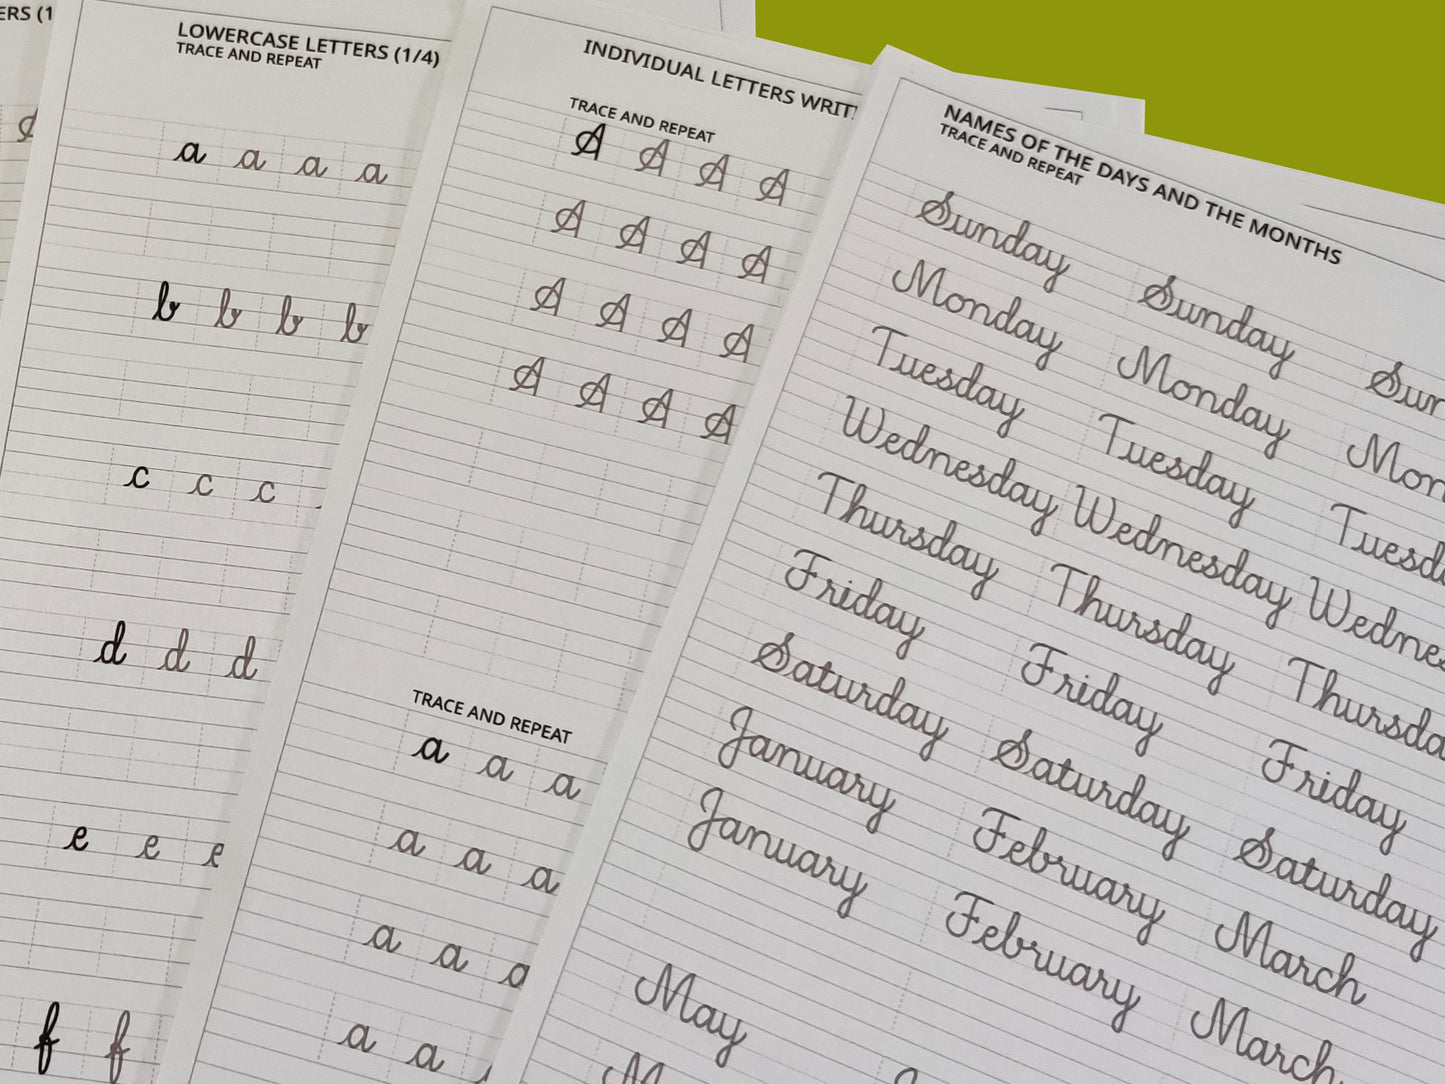 ERS (1
LOWERCASE LETTERS (1/4)
TRACE AND REPEAT
a a a a
b b b b
c c c
d d d
e e e
f f
INDIVIDUAL LETTERS WRIT
TRACE AND REPEAT
A A A A
A A A A
A A A A
A A A A
TRACE AND REPEAT
a a a
a a a
a a a
a a
NAMES OF THE DAYS AND THE MONTHS
TRACE AND REPEAT
Sunday Sunday Sun
Monday Monday Mon
Tuesday Tuesday Tuesd
Wednesday Wednesday Wednes
Thursday Thursday Thursda
Friday Friday Friday
Saturday Saturday Saturday
January February March
January February March
May